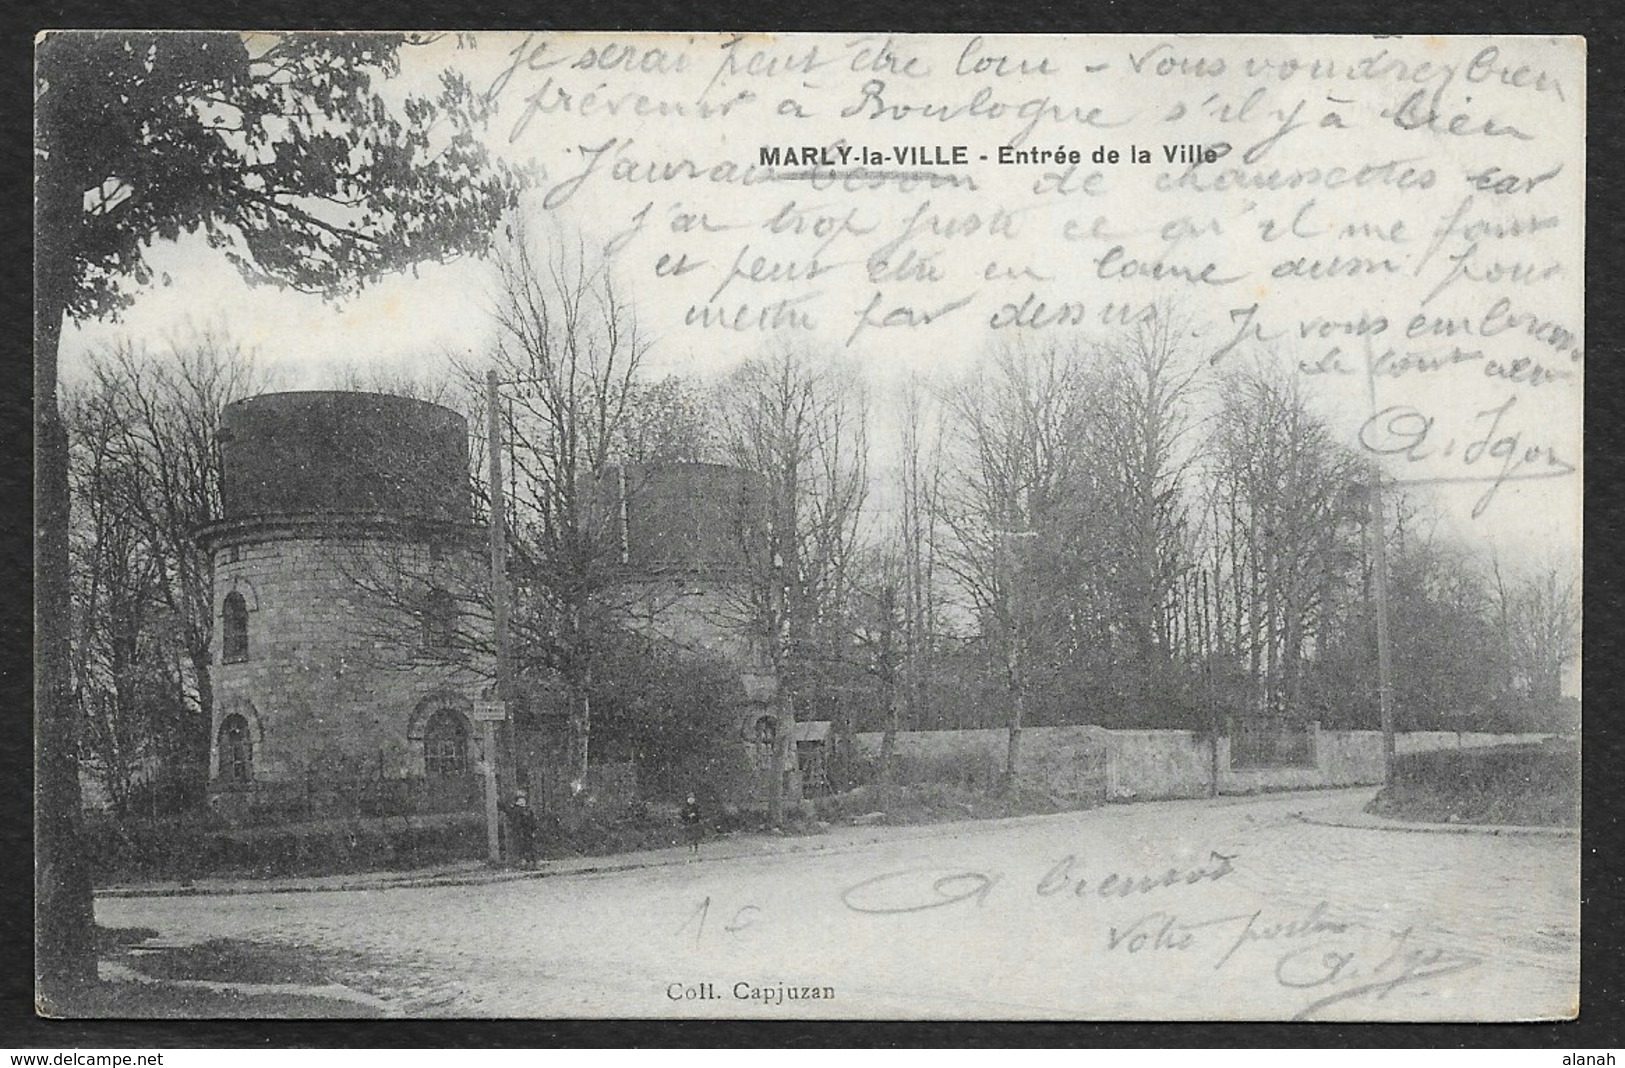 Je serai peut être loin - Vous voudrez bien
prévenir à Boulogne s'il y à bien
MARLY-la-VILLE - Entrée de la Ville
J'aurais besoin de chaussettes car
j'ai trop juste ce qu'il me faut
et peut être en laine aussi pour
mettre par dessus.
Je vous embrasse
A. Igon
A bientôt
Votre
A. Igon
Coll. Capjuzan
www.delcampe.net
alanah